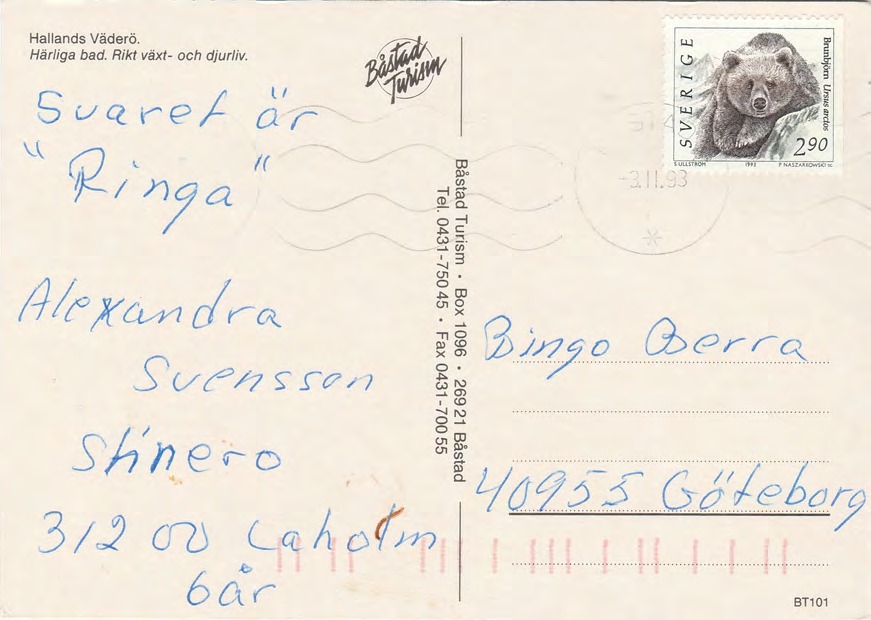 Hallands Väderö.
Härliga bad. Rikt växt- och djurliv.
Båstad
Turism
Svaret är
"Ringa"
Alexandra
Svensson
Stinero
312 00 Laholm
6år
Båstad Turism · Box 1096 · 269 21 Båstad
Tel. 0431-750 45 · Fax 0431-700 55
SVERIGE
Brunbjörn Ursus arctos
2.90
S ULLSTRÖM 1992 P NASZARKOWSKI sc
-3.11.93
Bingo Berra
40955 Göteborg
BT101